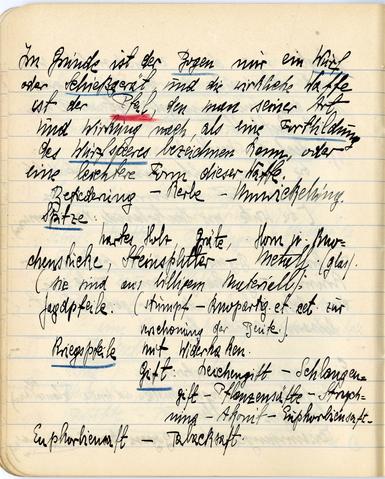 Im Grunde ist der Bogen nur ein Wurf
oder Schießgerät, und die wirkliche Waffe
ist der Pfeil, den man seiner Art
und Wirkung nach als eine Fortbildung
des Wurfspeeres bezeichnen kann, oder
eine leichtere Form dieser Waffe.
Befiederung – Kerbe – Umwickelung.
Spitze:
hartes Holz, Gräte, Horn u. Kno-
chenstücke, Steinsplitter – Metall. (glas).
(sie sind aus billigem Materiell):
Jagdpfeile: (stumpf – knopfartig et cet zur
verschonung der Beute.)
Kriegspfeile mit Widerhaken.
Gift: Leichengift – Schlangen-
gift – Pflanzensäfte – Strych-
ning – Akonit – Euphorbiensaft –
Euphorbiensaft – Tabacksaft.